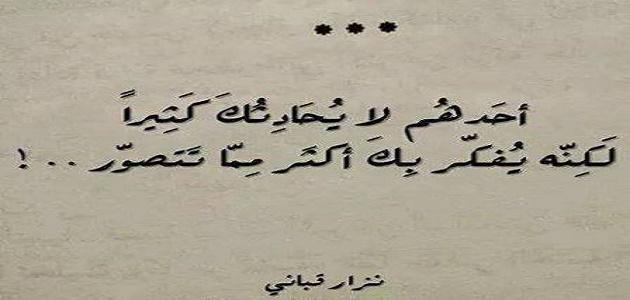 ***
أحَدهُم لا يُحَادِثُكَ كَثِيراً
لَكِنّه يُفكّر بِكَ أكثَر مِمّا تَتَصوّر .. !
نزار قباني